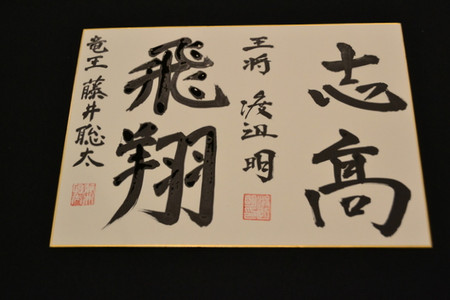 志高
王将 渡辺明
飛翔
竜王 藤井聡太